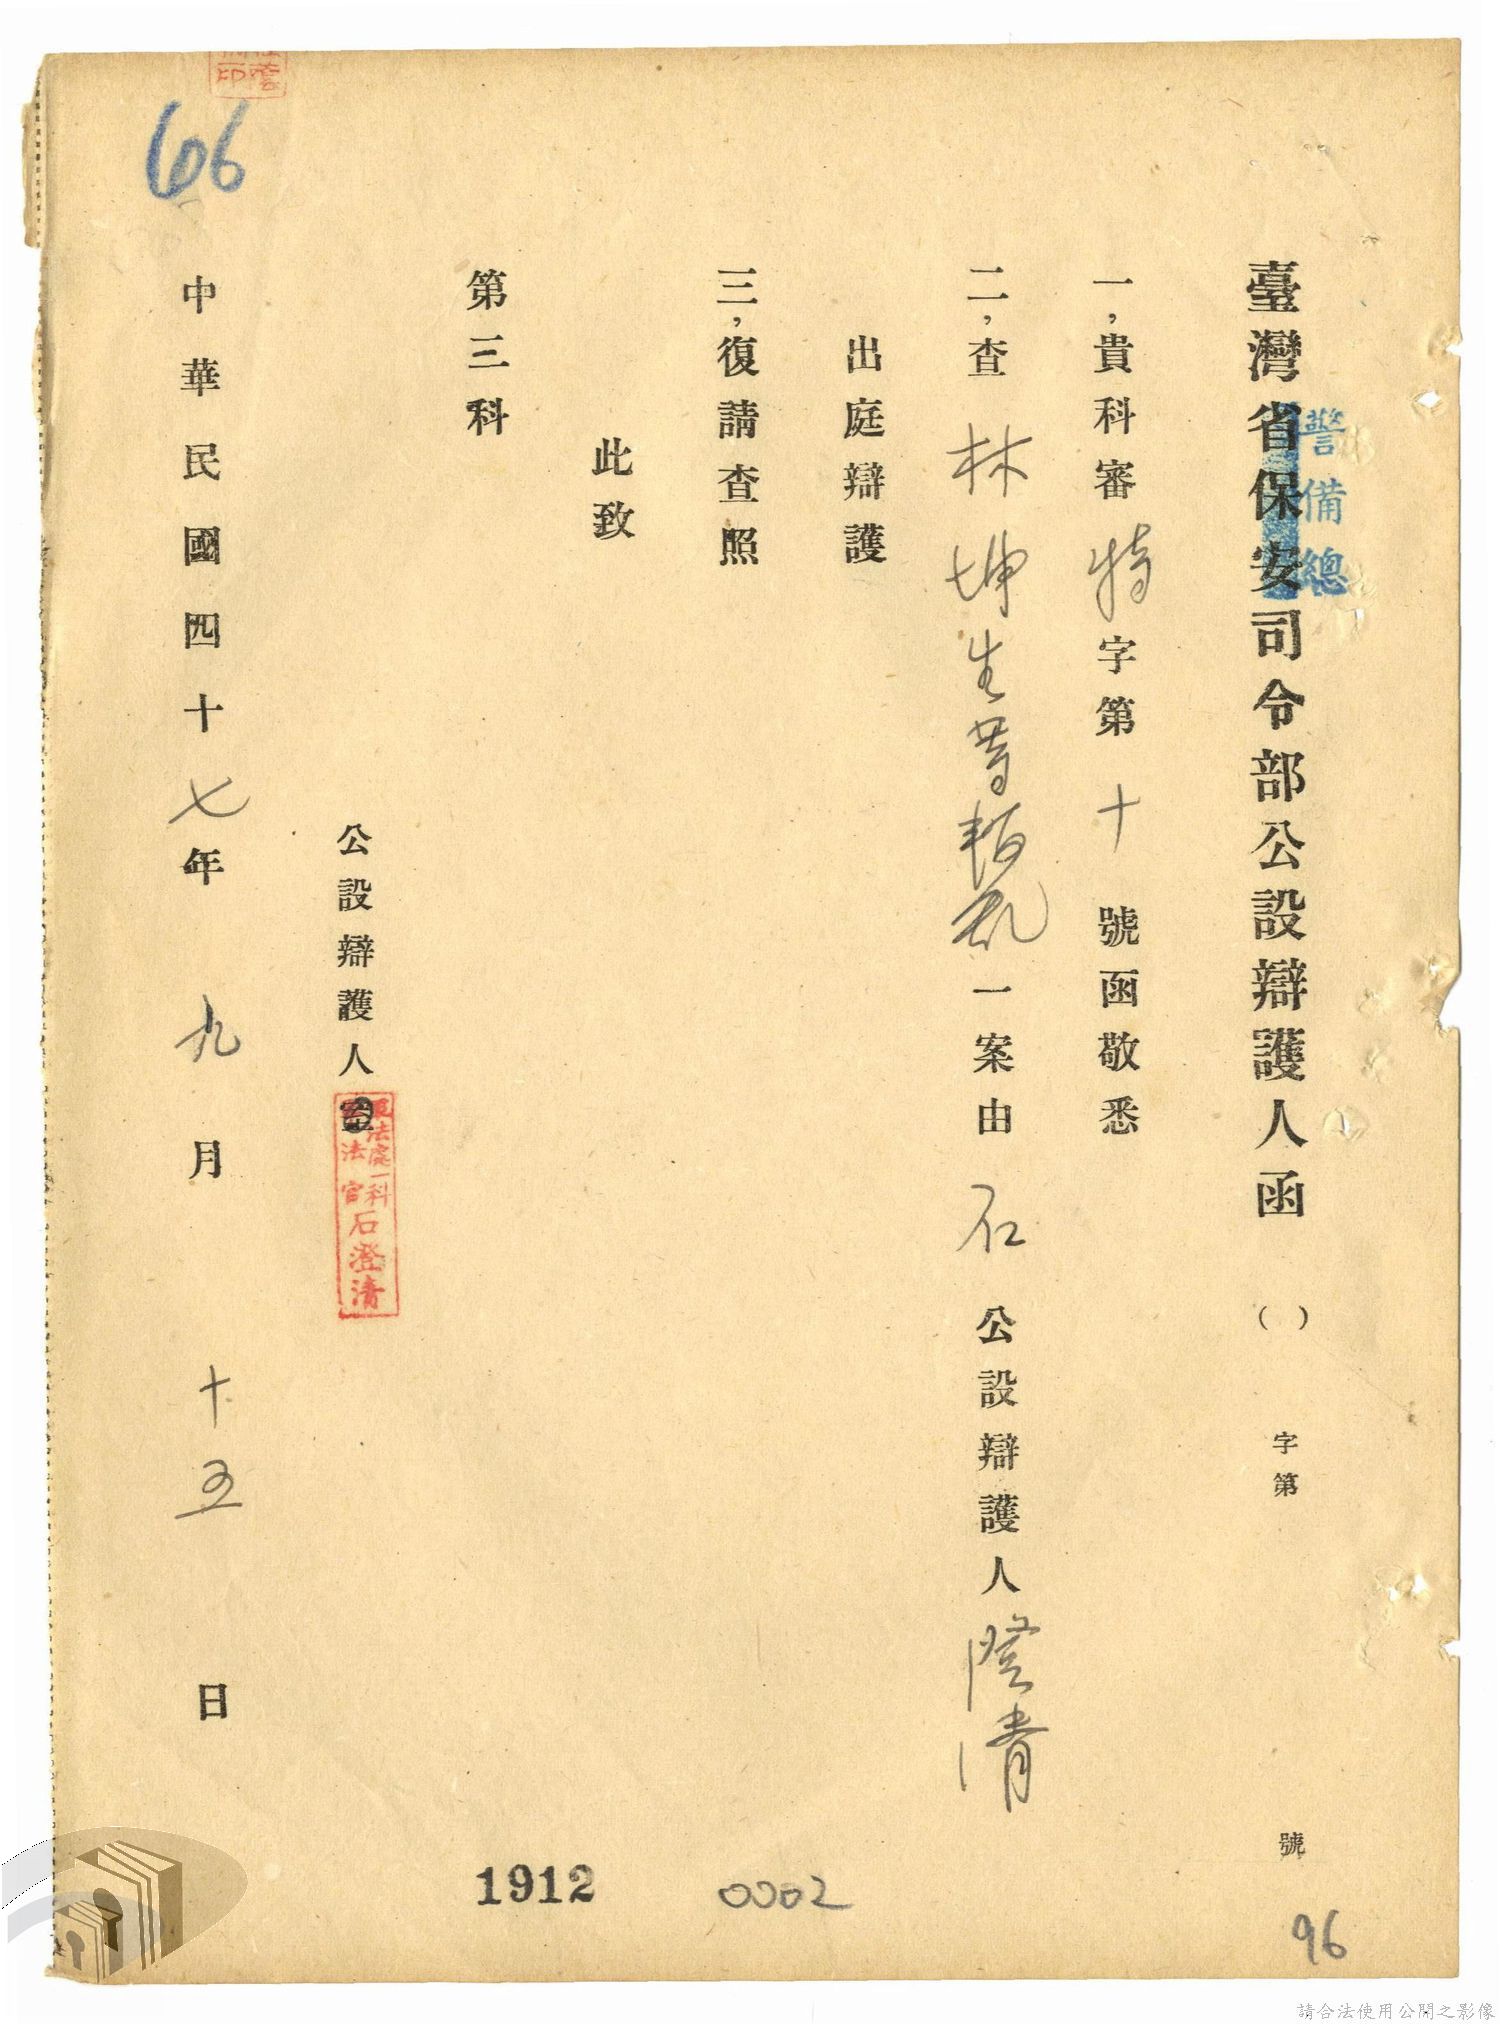 臺灣省保安司令部公設辯護人函 ( ) 字第 號
警備總
一,貴科審特字第十號函敬悉
二,查林坤生等叛亂一案由石公設辯護人澄清
出庭辯護
三,復請查照
此致
第三科
公設辯護人室
軍法處一科
法官石澄清
中華民國四十七年九月十五日
66
1912
0002
96
請合法使用公開之影像